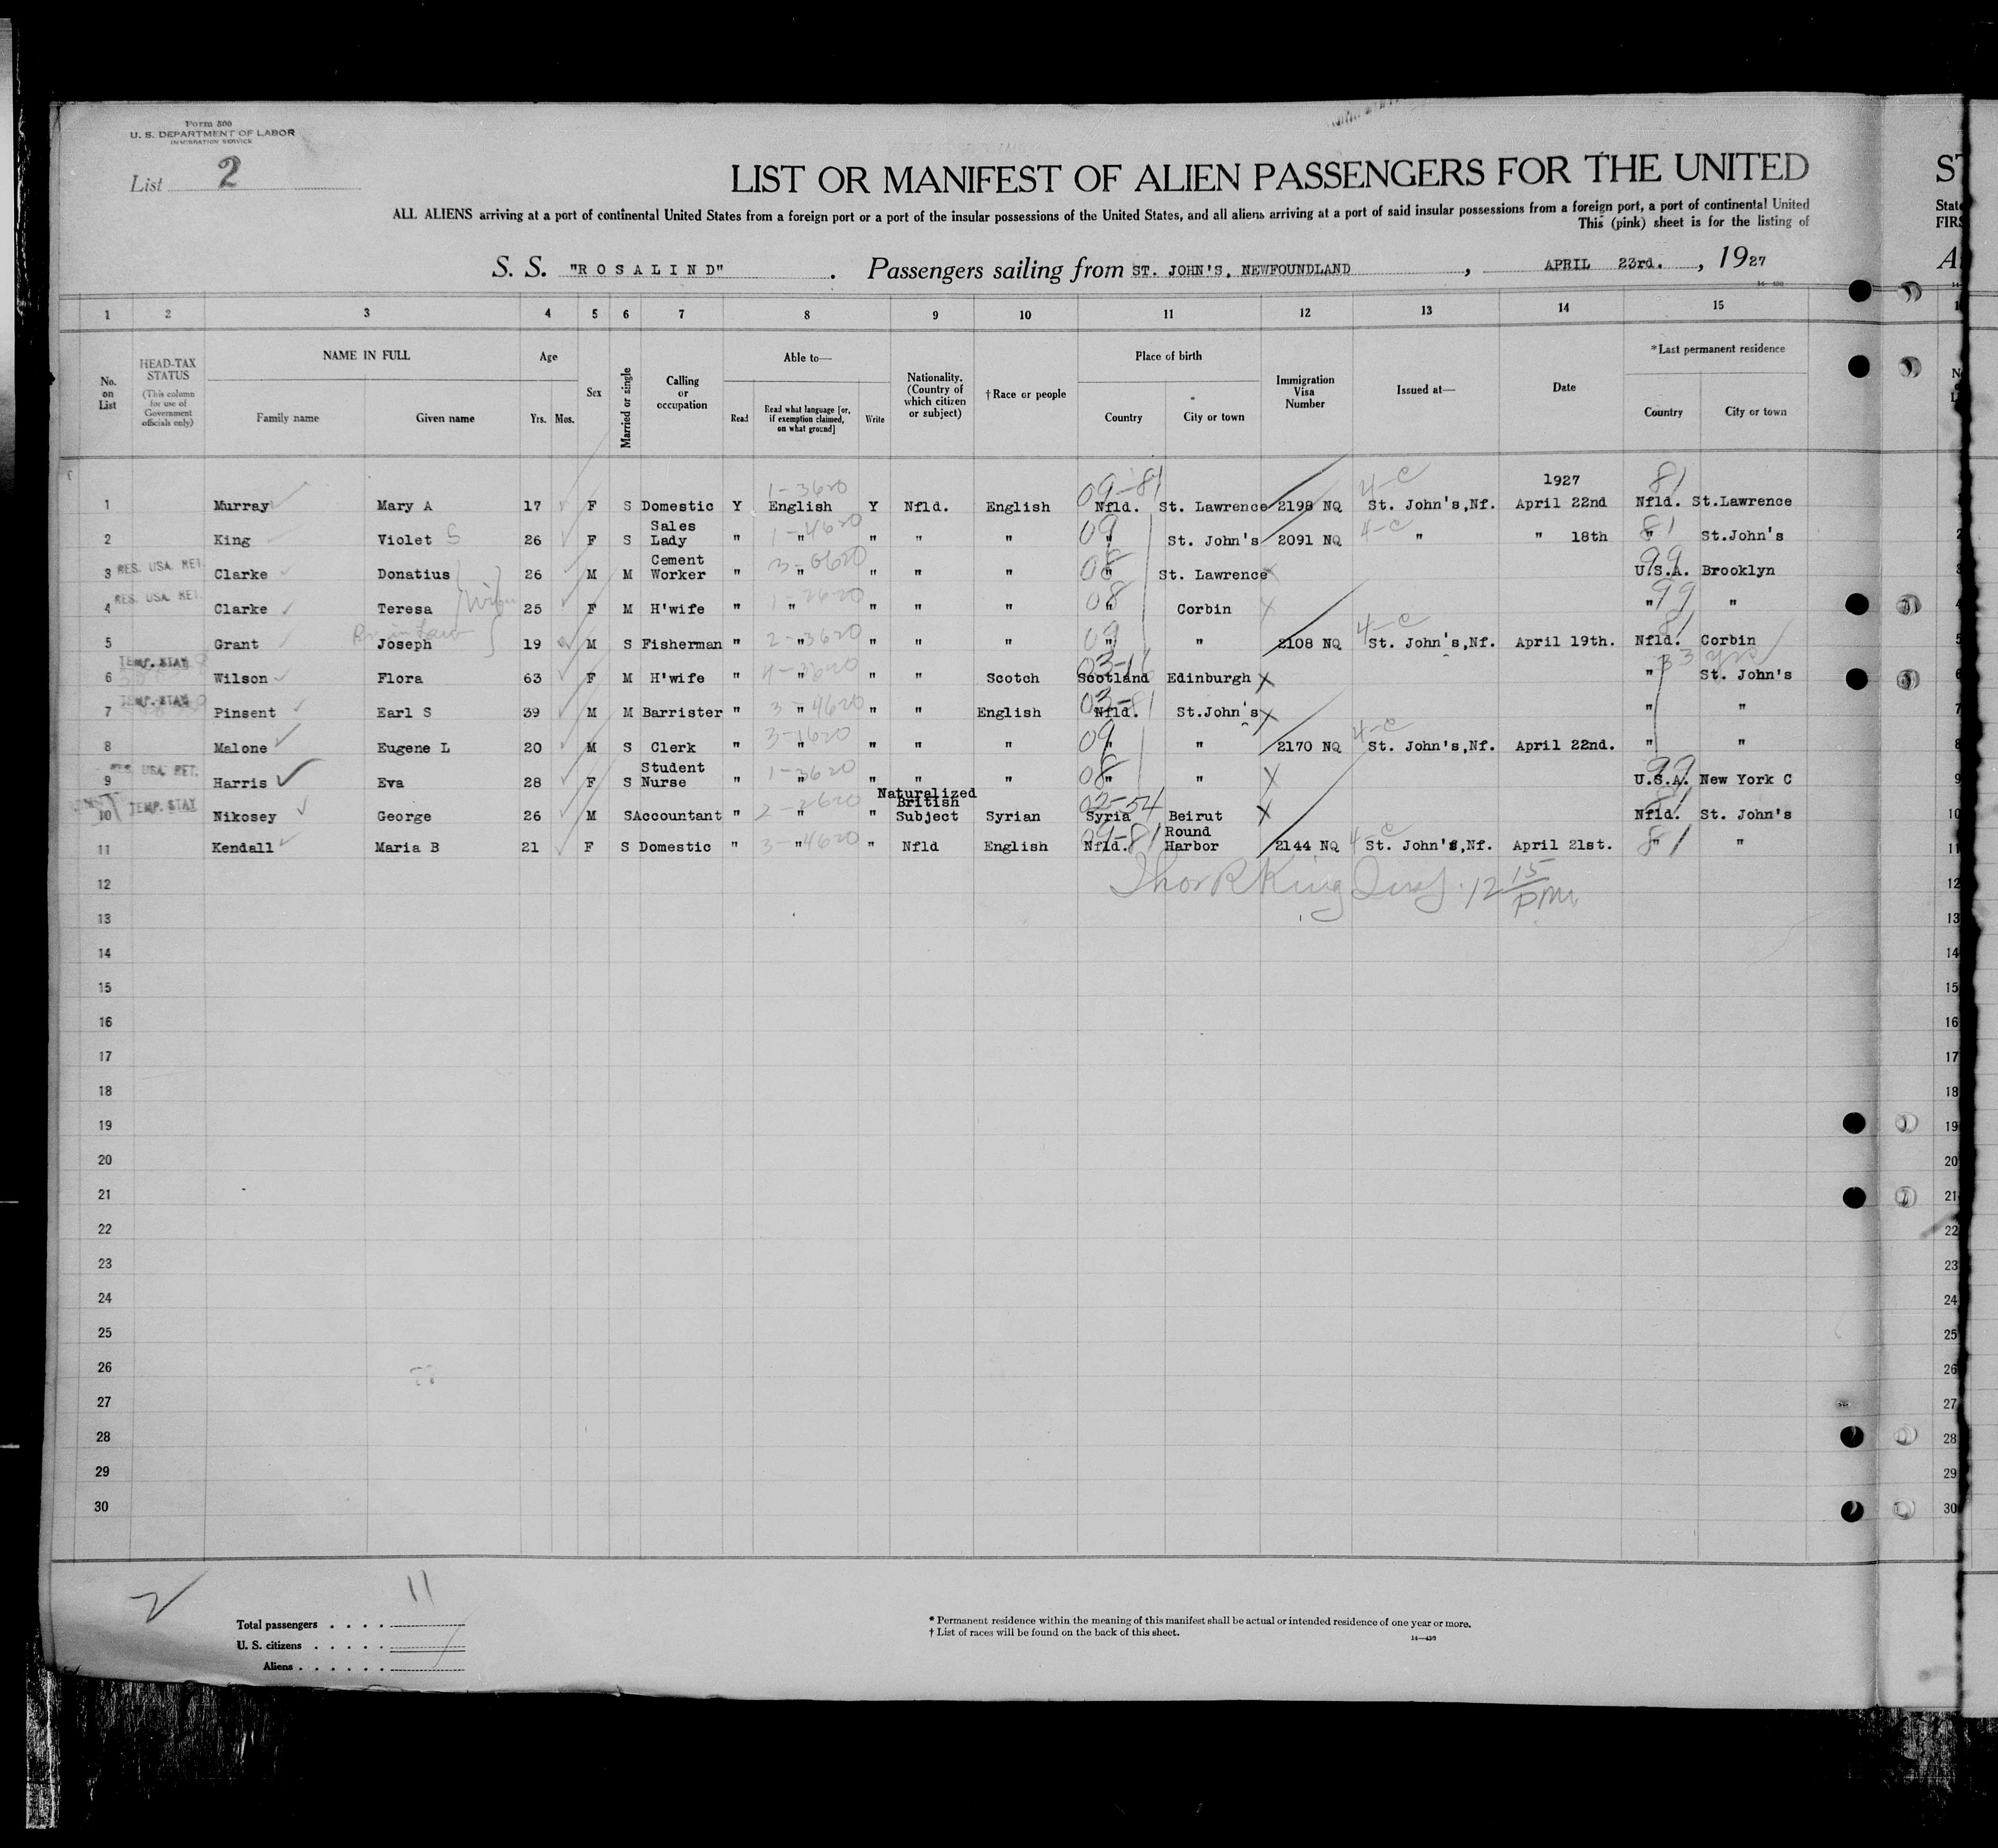 Form 500
U. S. DEPARTMENT OF LABOR
IMMIGRATION SERVICE
List 2
LIST OR MANIFEST OF ALIEN PASSENGERS FOR THE UNITED
ALL ALIENS arriving at a port of continental United States from a foreign port or a port of the insular possessions of the United States, and all aliens arriving at a port of said insular possessions from a foreign port, a port of continental United
This (pink) sheet is for the listing of
S. S. "ROSALIND" . Passengers sailing from ST. JOHN'S, NEWFOUNDLAND , APRIL 23rd. , 1927
1 2 3 4 5 6 7 8 9 10 11 12 13 14 15
No. on List
HEAD-TAX STATUS
(This column for use of Government officials only)
NAME IN FULL
Family name Given name
Age
Yrs. Mos.
Sex
Married or single
Calling or occupation
Able to—
Read
Read what language [or, if exemption claimed, on what ground]
Write
Nationality. (Country of which citizen or subject)
†Race or people
Place of birth
Country City or town
Immigration Visa Number
Issued at—
Date
*Last permanent residence
Country City or town
1927
1 Murray Mary A 17 F S Domestic Y English Y Nfld. English Nfld. St. Lawrence 2198 NQ St. John's,Nf. April 22nd Nfld. St.Lawrence
2 King Violet S 26 F S Sales Lady " " " " " " St. John's 2091 NQ " " 18th " St.John's
3 RES. USA. RET. Clarke Donatius 26 M M Cement Worker " " " " " " St. Lawrence U.S.A. Brooklyn
4 RES. USA. RET. Clarke Teresa 25 F M H'wife " " " " " " Corbin " "
5 Grant Joseph 19 M S Fisherman " " " " " " " 2108 NQ St. John's,Nf. April 19th. Nfld. Corbin
6 TEMP. STAY Wilson Flora 63 F M H'wife " " " " Scotch Scotland Edinburgh " St. John's
7 TEMP. STAY Pinsent Earl S 39 M M Barrister " " " " English Nfld. St.John's " "
8 Malone Eugene L 20 M S Clerk " " " " " " " 2170 NQ St. John's,Nf. April 22nd. " "
9 RES. USA. RET. Harris Eva 28 F S Student Nurse " " " " " " " U.S.A. New York C
10 TEMP. STAY Nikosey George 26 M S Accountant " " " Naturalized British Subject Syrian Syria Beirut Nfld. St. John's
11 Kendall Maria B 21 F S Domestic " " " Nfld English Nfld. Round Harbor 2144 NQ St. John's,Nf. April 21st. " "
12
13
14
15
16
17
18
19
20
21
22
23
24
25
26
27
28
29
30
2
11
Total passengers
U. S. citizens
Aliens
* Permanent residence within the meaning of this manifest shall be actual or intended residence of one year or more.
† List of races will be found on the back of this sheet.